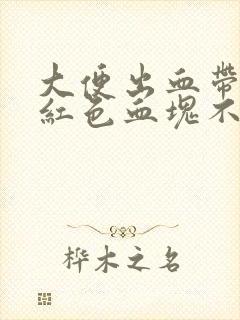 大便出血帶
紅色血塊不
桦木之名